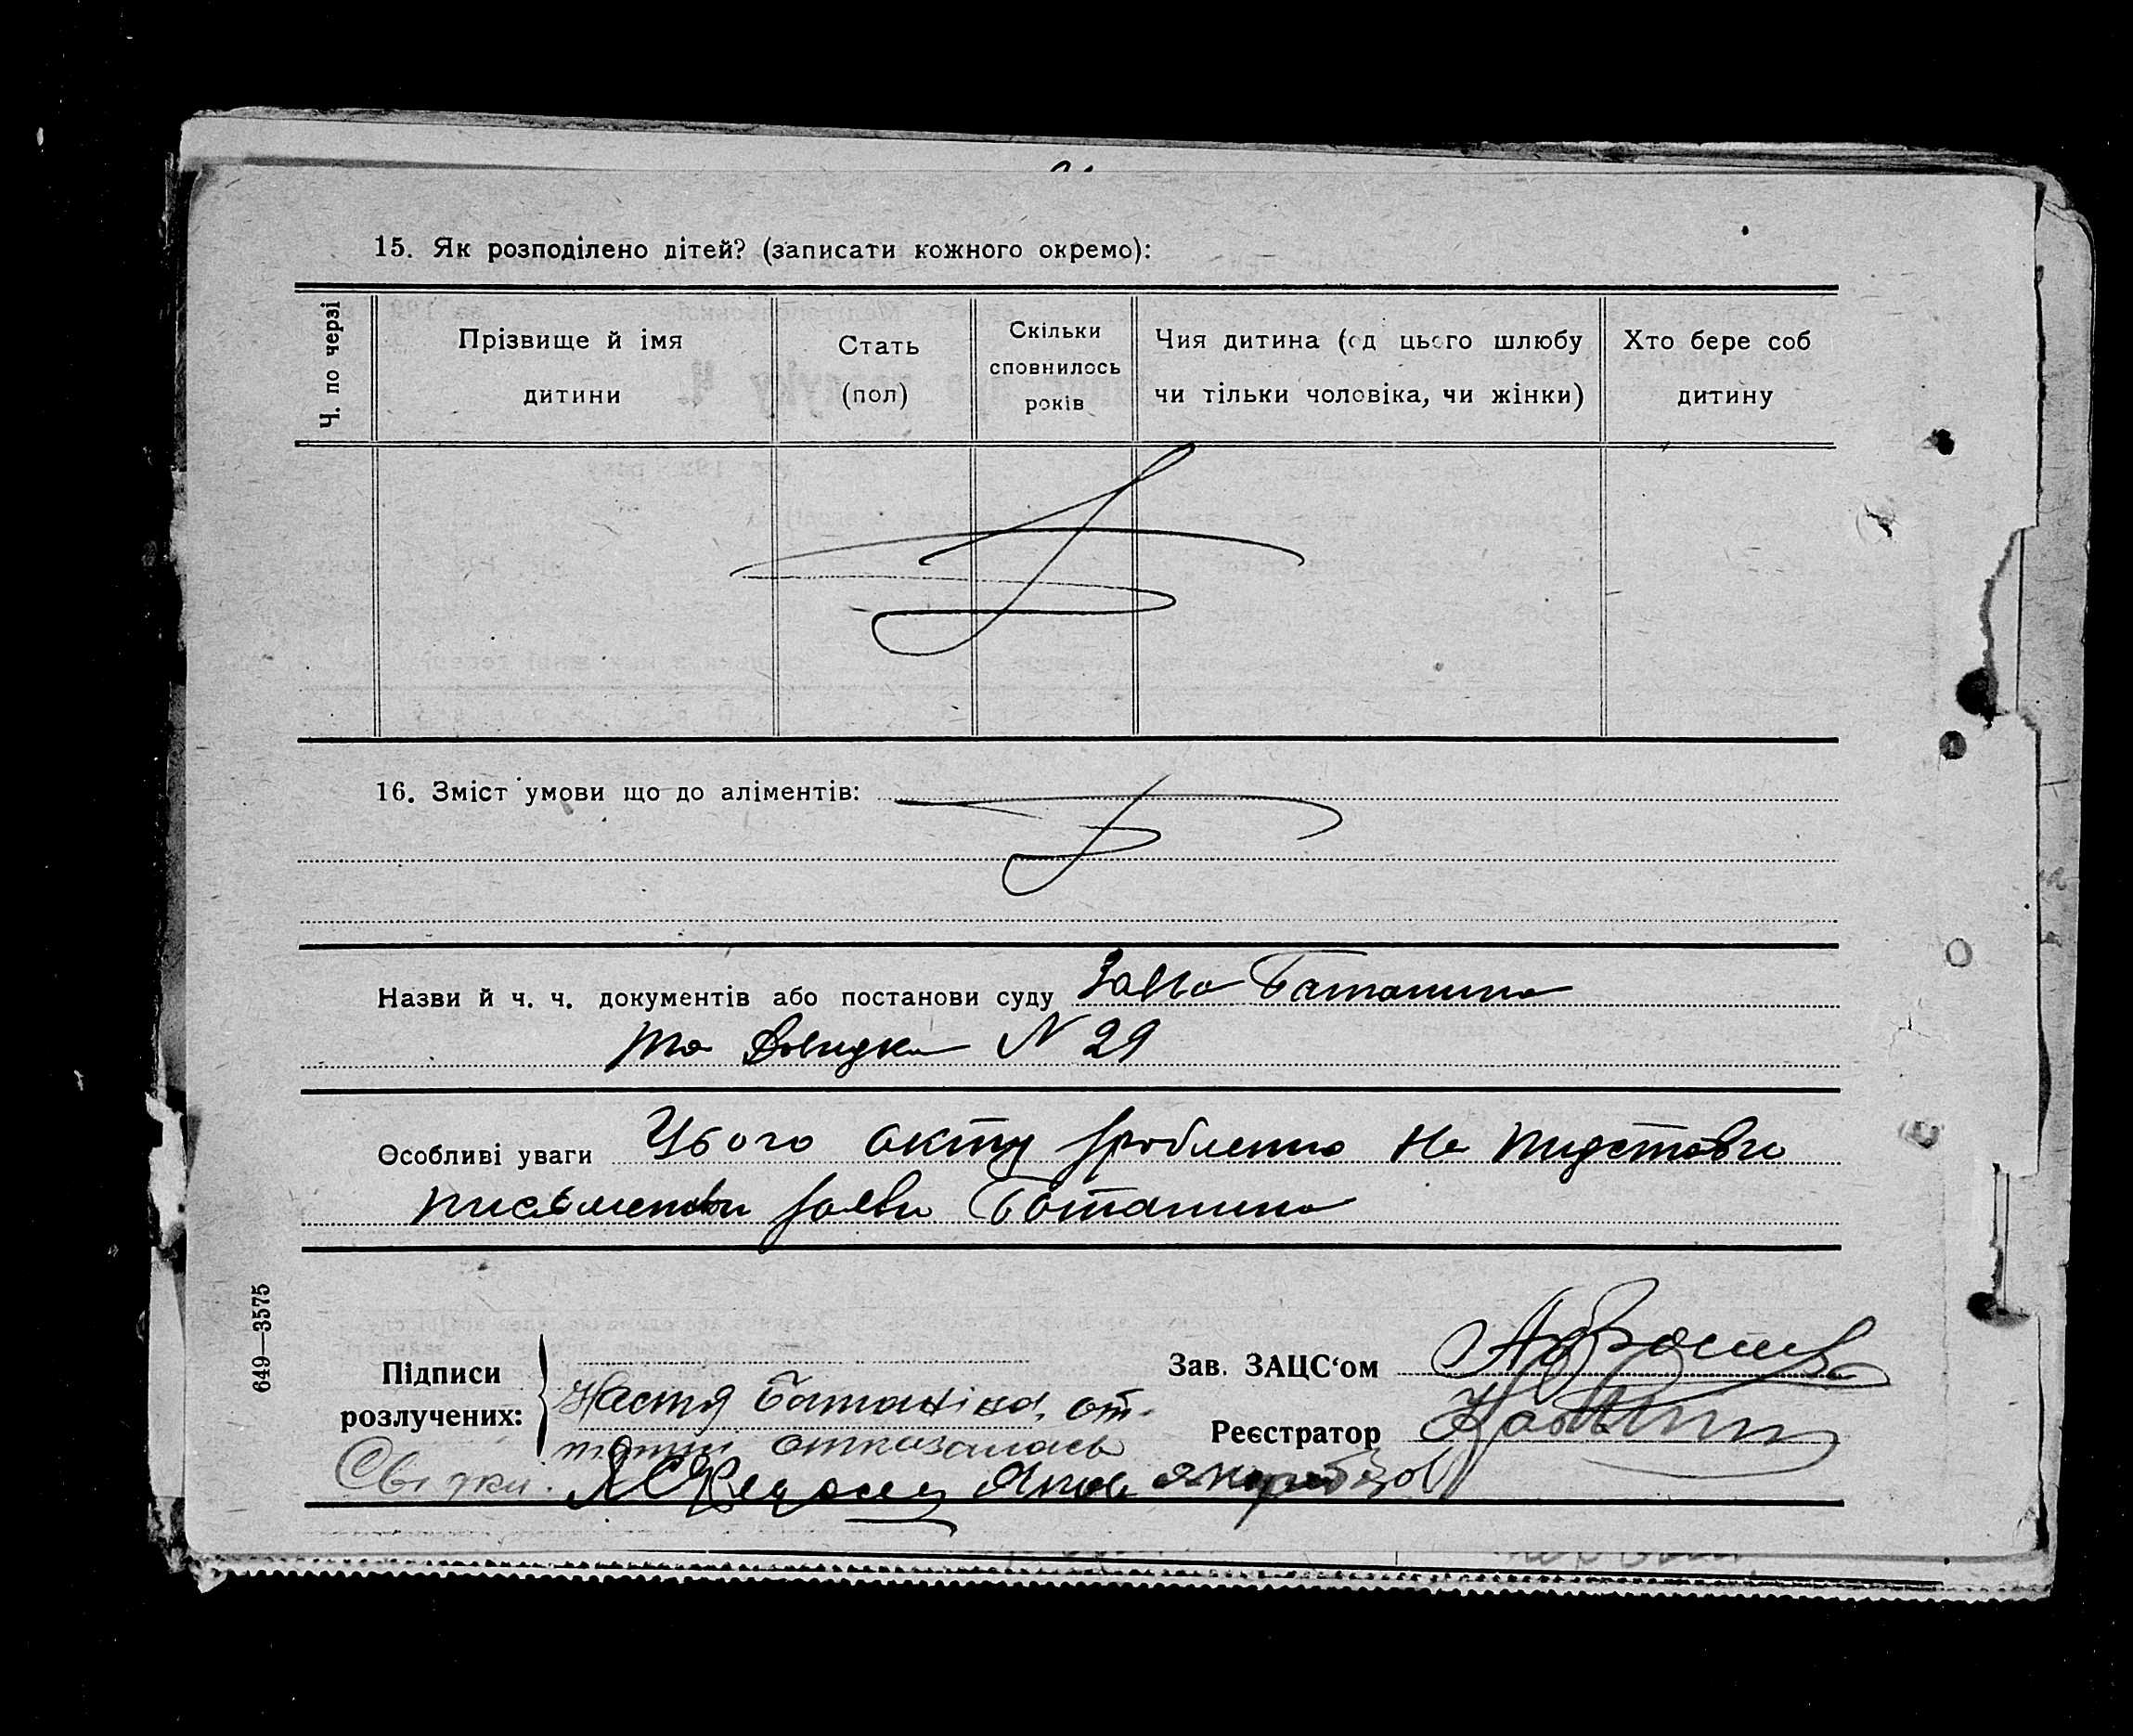 15. Як розподілено дітей? (записати кожного окремо):
Ч. по черзі
Прізвище й імя дитини
Стать (пол)
Скільки сповнилось років
Чия дитина (од цього шлюбу чи тільки чоловіка, чи жінки)
Хто бере соб дитину
16. Зміст умови що до аліментів:
Назви й ч. ч. документів або постанови суду Заява Батанина
та Довидка N 29
Особливі уваги Цього акту зроблено на пидстави
письменови заяви Батанина
649—3575
Підписи розлучених:
Настя Батаніна, от-
отказалась
Зав. ЗАЦС'ом
Реєстратор
Свідки.